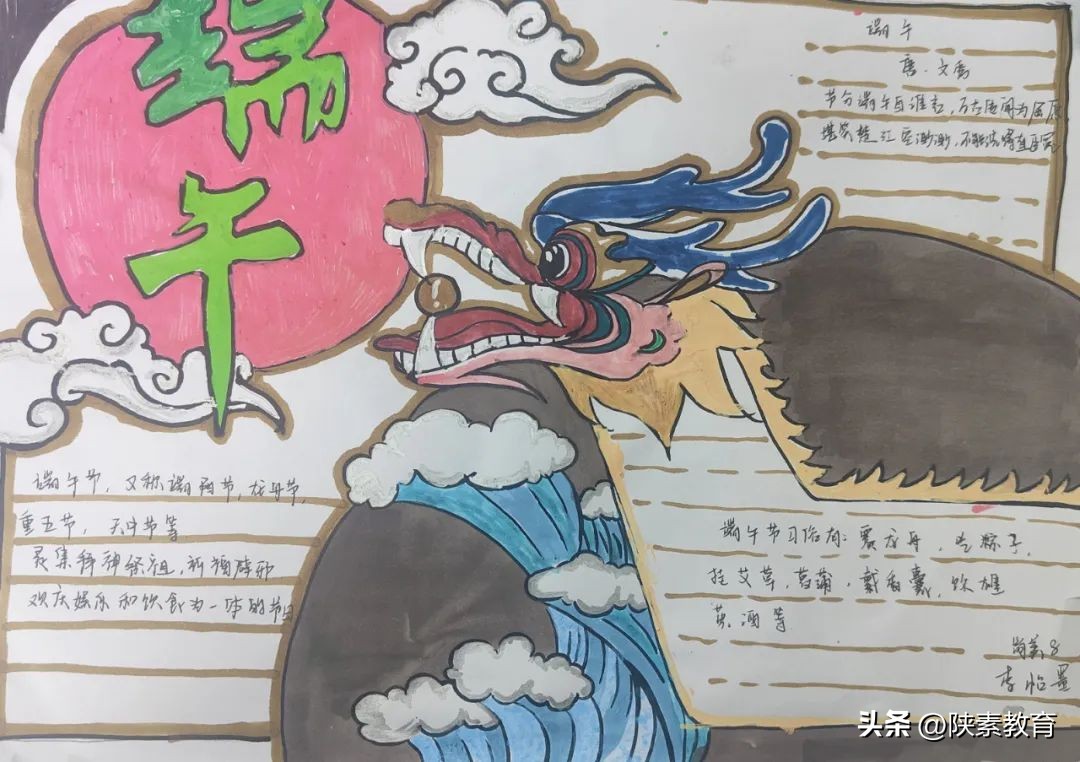 端午
端午
唐·文秀
节分端午自谁言，万古传闻为屈原，
堪笑楚江空渺渺，不能洗得直臣冤
端午节，又称端阳节，龙舟节，
重五节，天中节等
是集拜神祭祖，祈福辟邪
欢庆娱乐和饮食为一体的节日
端午节习俗有：赛龙舟，吃粽子，
挂艾草，菖蒲，戴香囊，饮雄
黄酒等
尚美8
李怡墨
头条 @陕素教育